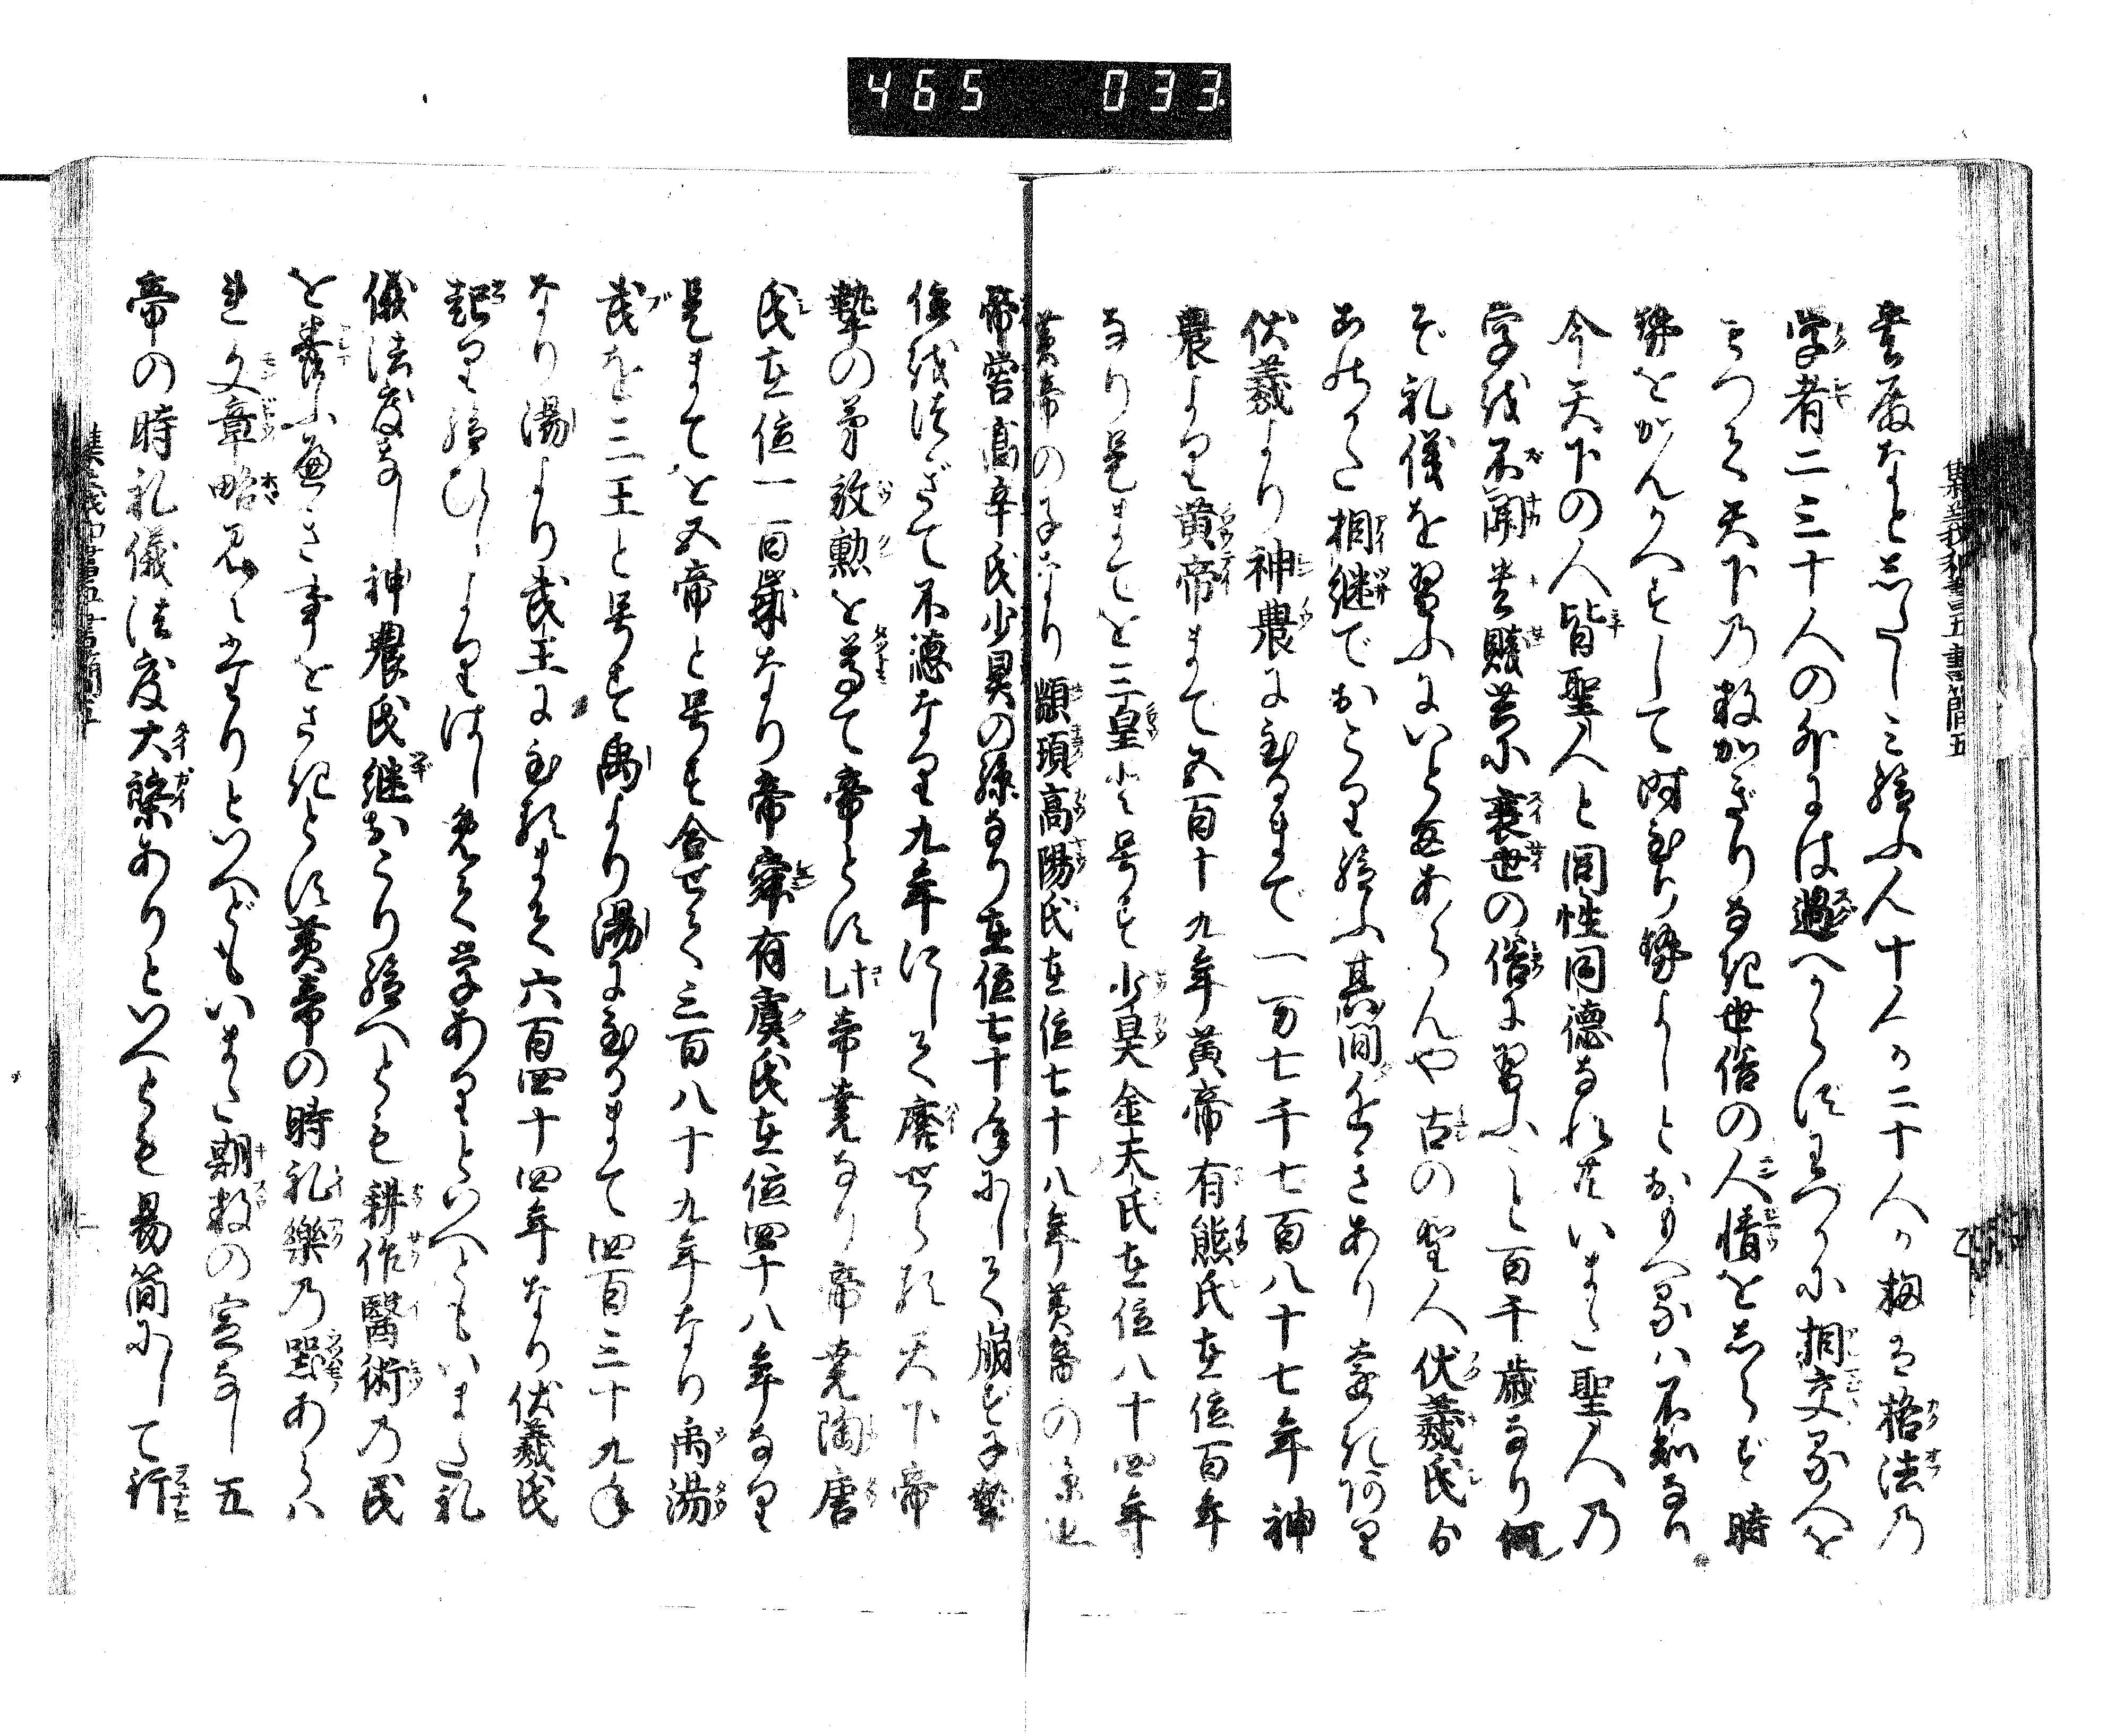 465 033
集義和書五書簡五
貴殿なと志たしミ給ふ人十人か二十人か極る格法乃
学者二三十人の外には過へからすわつかに相交る人を
もつて天下乃数かぎりなき世俗の人情を志らず時
勢をかんかへすして時至り勢よしとおもへるハ不知なり
今天下の人皆聖人と同性同徳なれ共いまた聖人乃
学を不聞貴賤共に衰世の俗に習ふこと百千歳なり何
そ礼儀を習ふにいとまあらんや古の聖人伏羲氏か
あめを相継でおこり給ふ其間をき
伏羲より神農に至るまで一万七千七百八十七年神
農より黄帝まて五百十九年黄帝有熊氏在位百年
なり是まてを三皇と号す少昊金天氏在位八十四年
黄帝の子なり顓頊高陽氏在位七十八年黄帝の孫也
帝嚳高辛氏少昊の孫なり在位七十年にして崩す子摯
位を法ざて不徳なり九年にして廃せらる天下帝
摯の弟放勲を尊て帝とす此帝堯なり帝堯陶唐
氏在位一百歳なり帝舜有虞氏在位四十八年なり
是まてを五帝と号す合せて三百八十九年なり禹湯
武を三王と号す禹より湯に至るまて四百三十九年
なり湯より武王に至るまて六百四十四年なり伏羲氏
起り給ひしよりはしめて学ありといへともいまた礼
儀法度なし神農氏継おこり給へとも耕作醫術乃民
を養ふへき事をさきとす黄帝の時礼樂乃器あらハ
れ文章略見へたりといへどもいまた期数の定なし五
帝の時礼儀法度大槩ありといへとも易簡にして行
集義和書五書簡五